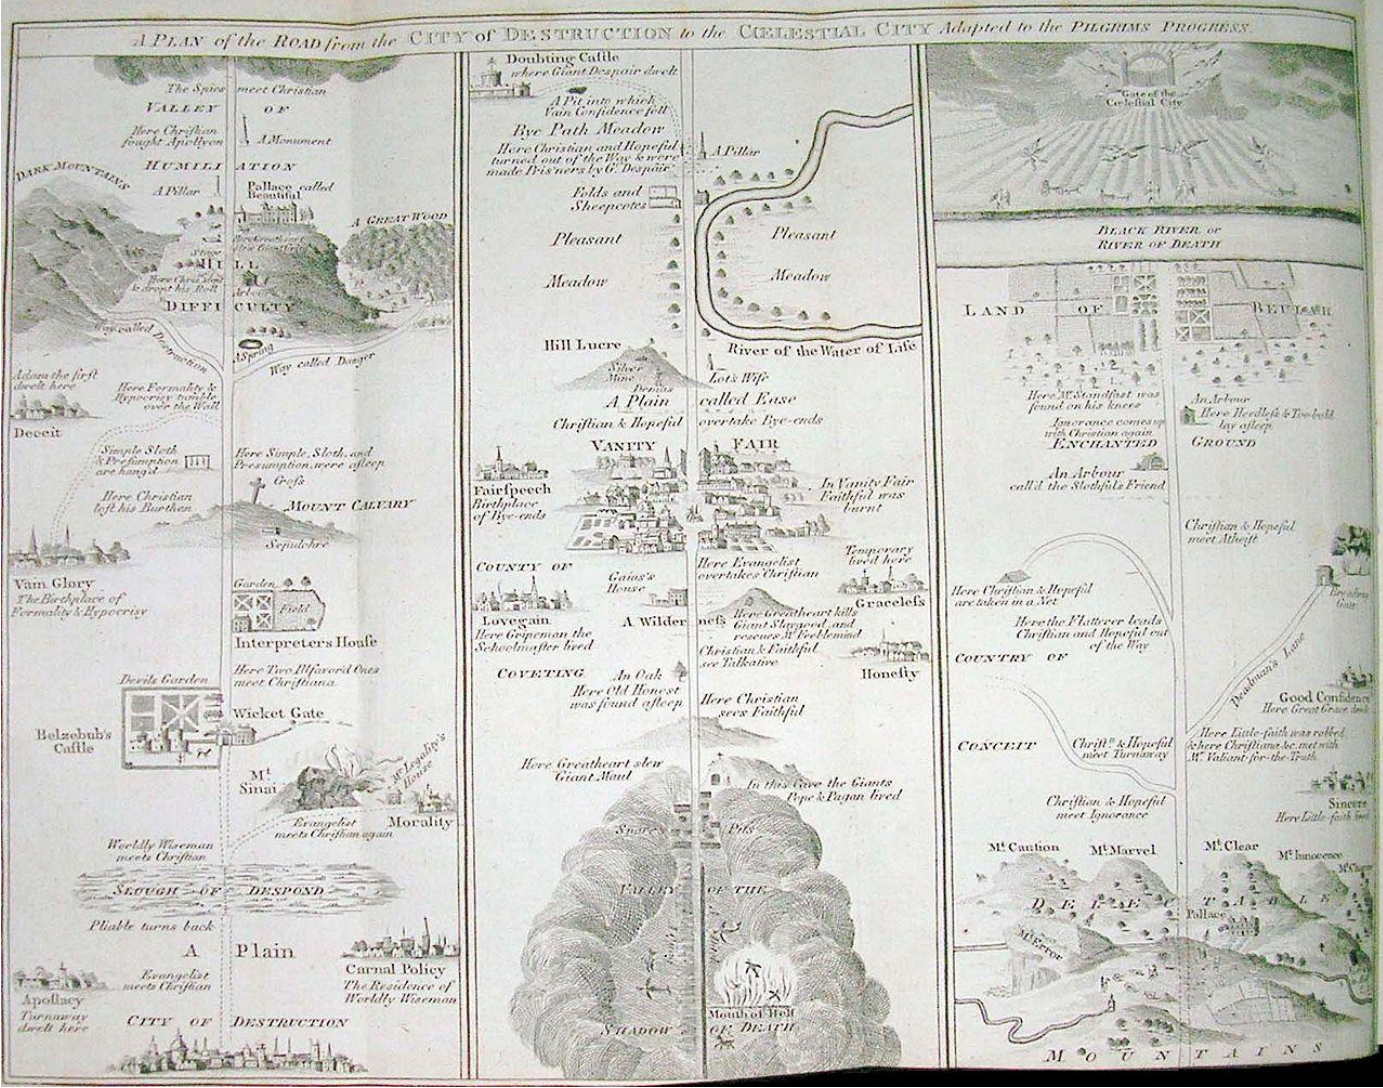 A PLAN of the ROAD from the CITY of DESTRUCTION to the CŒLESTIAL CITY Adapted to the PILGRIMS PROGRESS.
The Spies meet Christian
VALLEY OF
Here Christian
fought Apollyon
A Monument
HUMILIATION
DARK MOUNTAINS
A Pillar
Pallace called
Beautiful
A GREAT WOOD
Stage
HILL
Here Christian slept
& dropt his Roll
Arbour
DIFFICULTY
Way called Destruction
A Spring
Way called Danger
Adam the first
dwelt here
Here Formality &
Hypocrisy tumble
over the Wall
Deceit
Simple Sloth
& Presumption
are hang'd
Here Simple, Sloth, and
Presumption, were asleep
Cross
Here Christian
left his Burthen
MOUNT CALVARY
Sepulchre
Vain Glory
The Birthplace of
Formality & Hypocrisy
Garden
Field
Interpreters House
Here Two Illfavor'd Ones
meet Christiana
Devils Garden
Wicket Gate
Belzebub's
Castle
Mt
Sinai
Mr Legality's
House
Evangelist
meets Christian again
Morality
Worldly Wiseman
meets Christian
SLOUGH OF DESPOND
Pliable turns back
A Plain
Carnal Policy
The Residence of
Worldly Wiseman
Evangelist
meets Christian
Apostacy
Turnaway
dwelt here
CITY OF DESTRUCTION
Doubting Castle
where Giant Despair dwelt
A Pit into which
Vain Confidence fell
Bye Path Meadow
Here Christian and Hopeful
turned out of the Way & were
made Pris'ners by Gt. Despair
A Pillar
Folds and
Sheepcotes
Pleasant
Meadow
Pleasant
Meadow
Hill Lucre
River of the Water of Life
Silver
Mine
Demas
Lot's Wife
A Plain called Ease
Christian & Hopeful overtake Bye-ends
VANITY FAIR
Fairspeech
Birthplace
of Bye-ends
In Vanity Fair
Faithful was
burnt
Temporary
lived here
COUNTY OF
Here Evangelist
overtakes Christian
Gaius's
House
Graceless
Lovegain
Here Gripeman the
Schoolmaster lived
A Wilderness
Here Greatheart kills
Giant Slaygood, and
rescues Mr Feeblemind
Christian & Faithful
see Talkative
Honesty
COVETING
An Oak
Here Old Honest
was found asleep
Here Christian
sees Faithful
Here Greatheart slew
Giant Maul
In this Cave the Giants
Pope & Pagan lived
Snares Pits
VALLEY OF THE
Mouth of Hell
SHADOW OF DEATH
Gate of the
Cœlestial City
BLACK RIVER or
RIVER OF DEATH
LAND OF BEULAH
Here Mr Standfast was
found on his knees
An Arbour
Here Heedless & Too-bold
lay asleep
Ignorance comes up
with Christian again
ENCHANTED GROUND
An Arbour
call'd the Slothful's Friend
Christian & Hopeful
meet Atheist
Here Christian & Hopeful
are taken in a Net
Here the Flatterer leads
Christian and Hopeful out
of the Way
Gate
COUNTRY OF
Deadman's Lane
Good Confidence
Here Great Grace dwelt
CONCEIT
Christn & Hopeful
meet Turnaway
Here Little-faith was robbed
& here Christiana &c. met with
Mr. Valiant-for-the-Truth
Sincere
Here Little-faith lived
Christian & Hopeful
meet Ignorance
Mt Caution
Mt Marvel
Mt. Clear
Mt Innocence
DELECTABLE
Pallace
Mt Error
MOUNTAINS